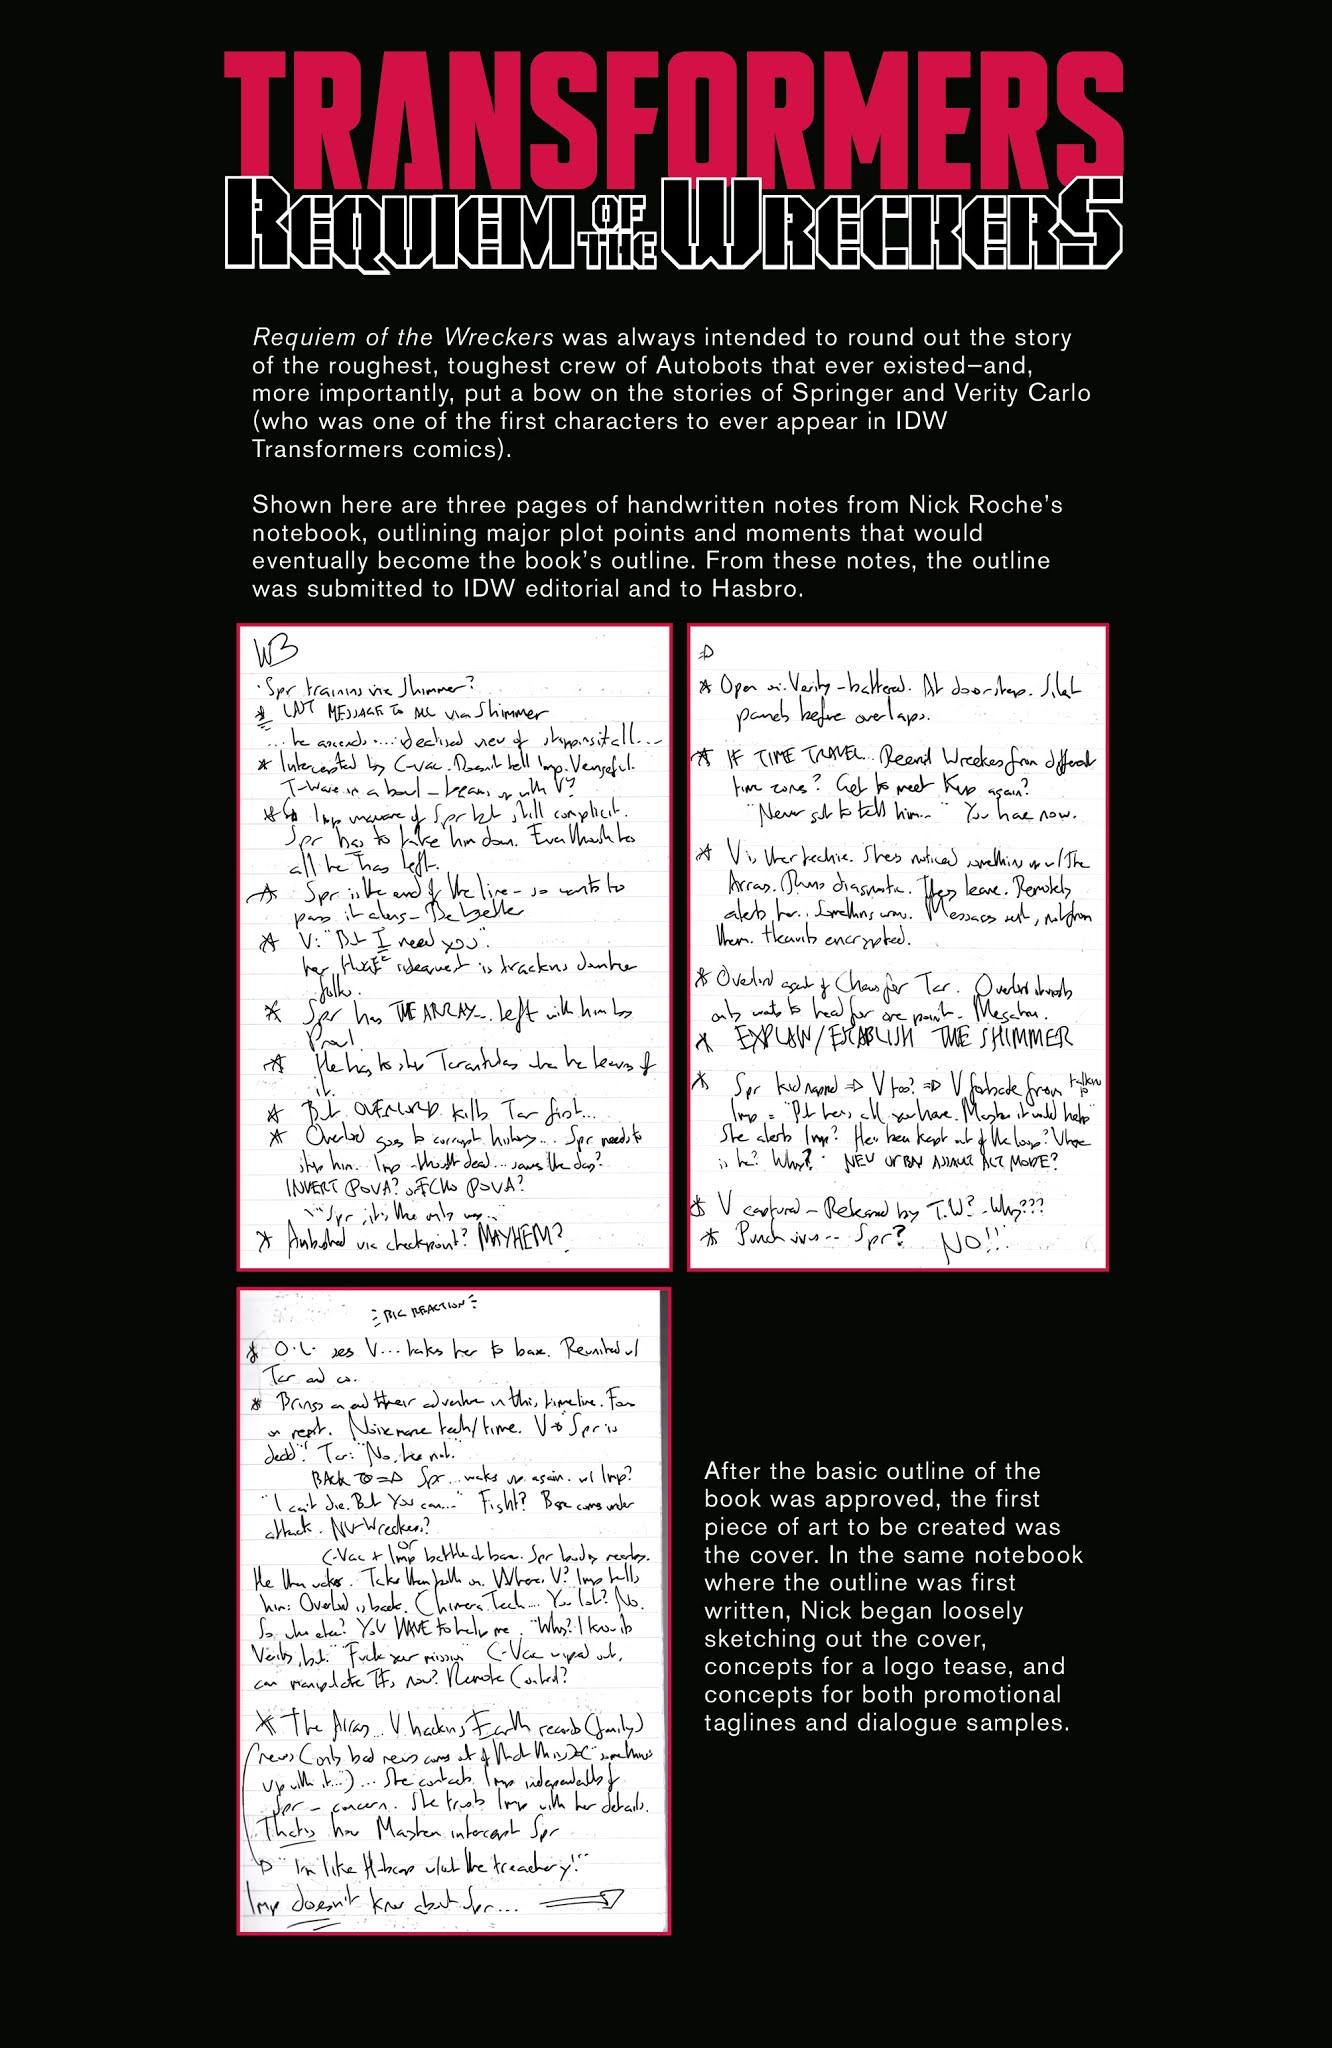 TRANSFORMERS
REQUIEM OF THE WRECKERS
Requiem of the Wreckers was always intended to round out the story
of the roughest, toughest crew of Autobots that ever existed—and,
more importantly, put a bow on the stories of Springer and Verity Carlo
(who was one of the first characters to ever appear in IDW
Transformers comics).
Shown here are three pages of handwritten notes from Nick Roche's
notebook, outlining major plot points and moments that would
eventually become the book's outline. From these notes, the outline
was submitted to IDW editorial and to Hasbro.
W3
Spr training via Shimmer?
LAST MESSAGE TO ALL via Shimmer
...he ascends.... view of it all...
* Intercepted by C-Vac. Doesn't tell Imp. Vengeful.
T-Wave in a bowl - teams up with V?
Imp unaware of Spr but still complicit.
Spr has to take him down. Even though he's
all he has left.
* Spr is the end of the line - so wants to
pass it along - Be better
* V: "But I need you".
her HUGE sidequest is tracking down her
folks.
* Spr has THE ARRAY... left with him by
Prowl
* He has to stop Tarantulas when he learns of
it.
* But OVERLORD kills Tar first...
* Overlord goes to corrupt history... Spr needs to
stop him. Imp - thought dead... saves the day?
INVERT POVA? or ECHO POVA?
"Spr, it's the only way..."
* Ambushed via checkpoint? MAYHEM?
* Open w. Verity - battered. At doorstep. Silent
panels before overlaps.
* IF TIME TRAVEL... Recruit Wreckers from different
time zones? Get to meet Kup again?
"Never got to tell him.." You have now.
* V is their techie. She's noticed something up w/ The
Array. Runs diagnostic. They leave. Remotely
alerts her.. Something wrong. Messages sent, not from
them. Heavily encrypted.
* Overlord agent of Chaos for Tar. Overlord
only wants to head for one point - Megatron.
* EXPLAIN/ESTABLISH THE SHIMMER
* Spr kidnapped => V too? => V from talking to
Imp = "But he's all you have. Maybe it would help"
She alerts Imp? He's been kept out of the loop? Where
is he? Why? NEW URBAN ASSAULT ALT MODE?
* V captured - Released by T.W? - Why???
* Punch ... Spr? NO!!
BIG REACTION
* O.L. sees V... takes her to base. Reunited w/
Tar and co.
* Brings an end their adventure in this timeline.
on repeat. Noisemaze tech/time. V "Spr is
dead"? Tar: "No, he's not."
BACK TO => Spr... wakes up again. w/ Imp?
"I can't die. But You can..." Fight? Base comes under
attack. Nu-Wreckers?
or
C-Vac + Imp battle at base. Spr body nearby.
He then wakes. Takes them both on. Where's V? Imp tells
him: Overlord is back. Chimera Tech.... You lot? No.
So who else? You HAVE to help me. "Why? I know it's
Verity, but." "Fuck your mission" C-Vac wiped out,
can manipulate TFs now? Remote Control?
* The Array... V hacking Earth records (family)
news (only bad news comes out of that thing "something's
up with it...")... She contacts Imp independently of
Spr - concern. She trusts Imp with her details.
That's how Mayhem intercept Spr
"I'm like H-bcap w/out the treachery!"
Imp doesn't know about Spr...
After the basic outline of the
book was approved, the first
piece of art to be created was
the cover. In the same notebook
where the outline was first
written, Nick began loosely
sketching out the cover,
concepts for a logo tease, and
concepts for both promotional
taglines and dialogue samples.